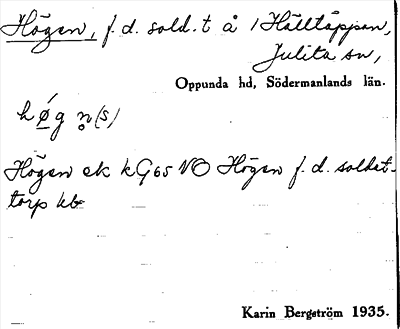 Högen, f. d. sold. t å 1 Hälltäppan,
Julita sn,
Oppunda hd, Södermanlands län.
hǿg n̥(s)
Högen ek kG65 NO Högen f. d. soldat-
torp kb
Karin Bergström 1935.